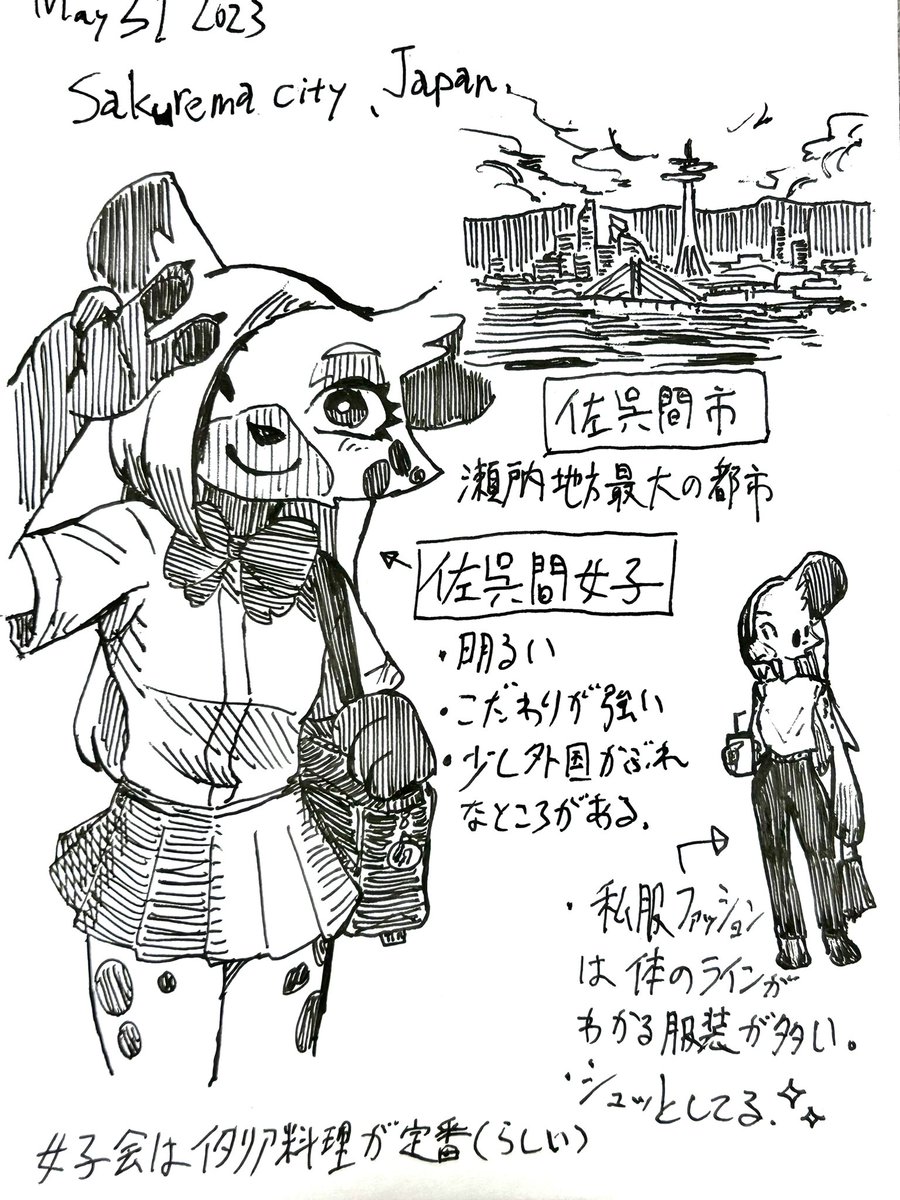 May 31 2023
Sakurema city, Japan.
佐呉間市
瀬内地方最大の都市
佐呉間女子
・明るい
・こだわりが強い
・少し外国かぶれ
なところがある.
・私服ファッション
は体のラインが
わかる服装が多い。
・シュッとしてる.
女子会はイタリア料理が定番(らしい)